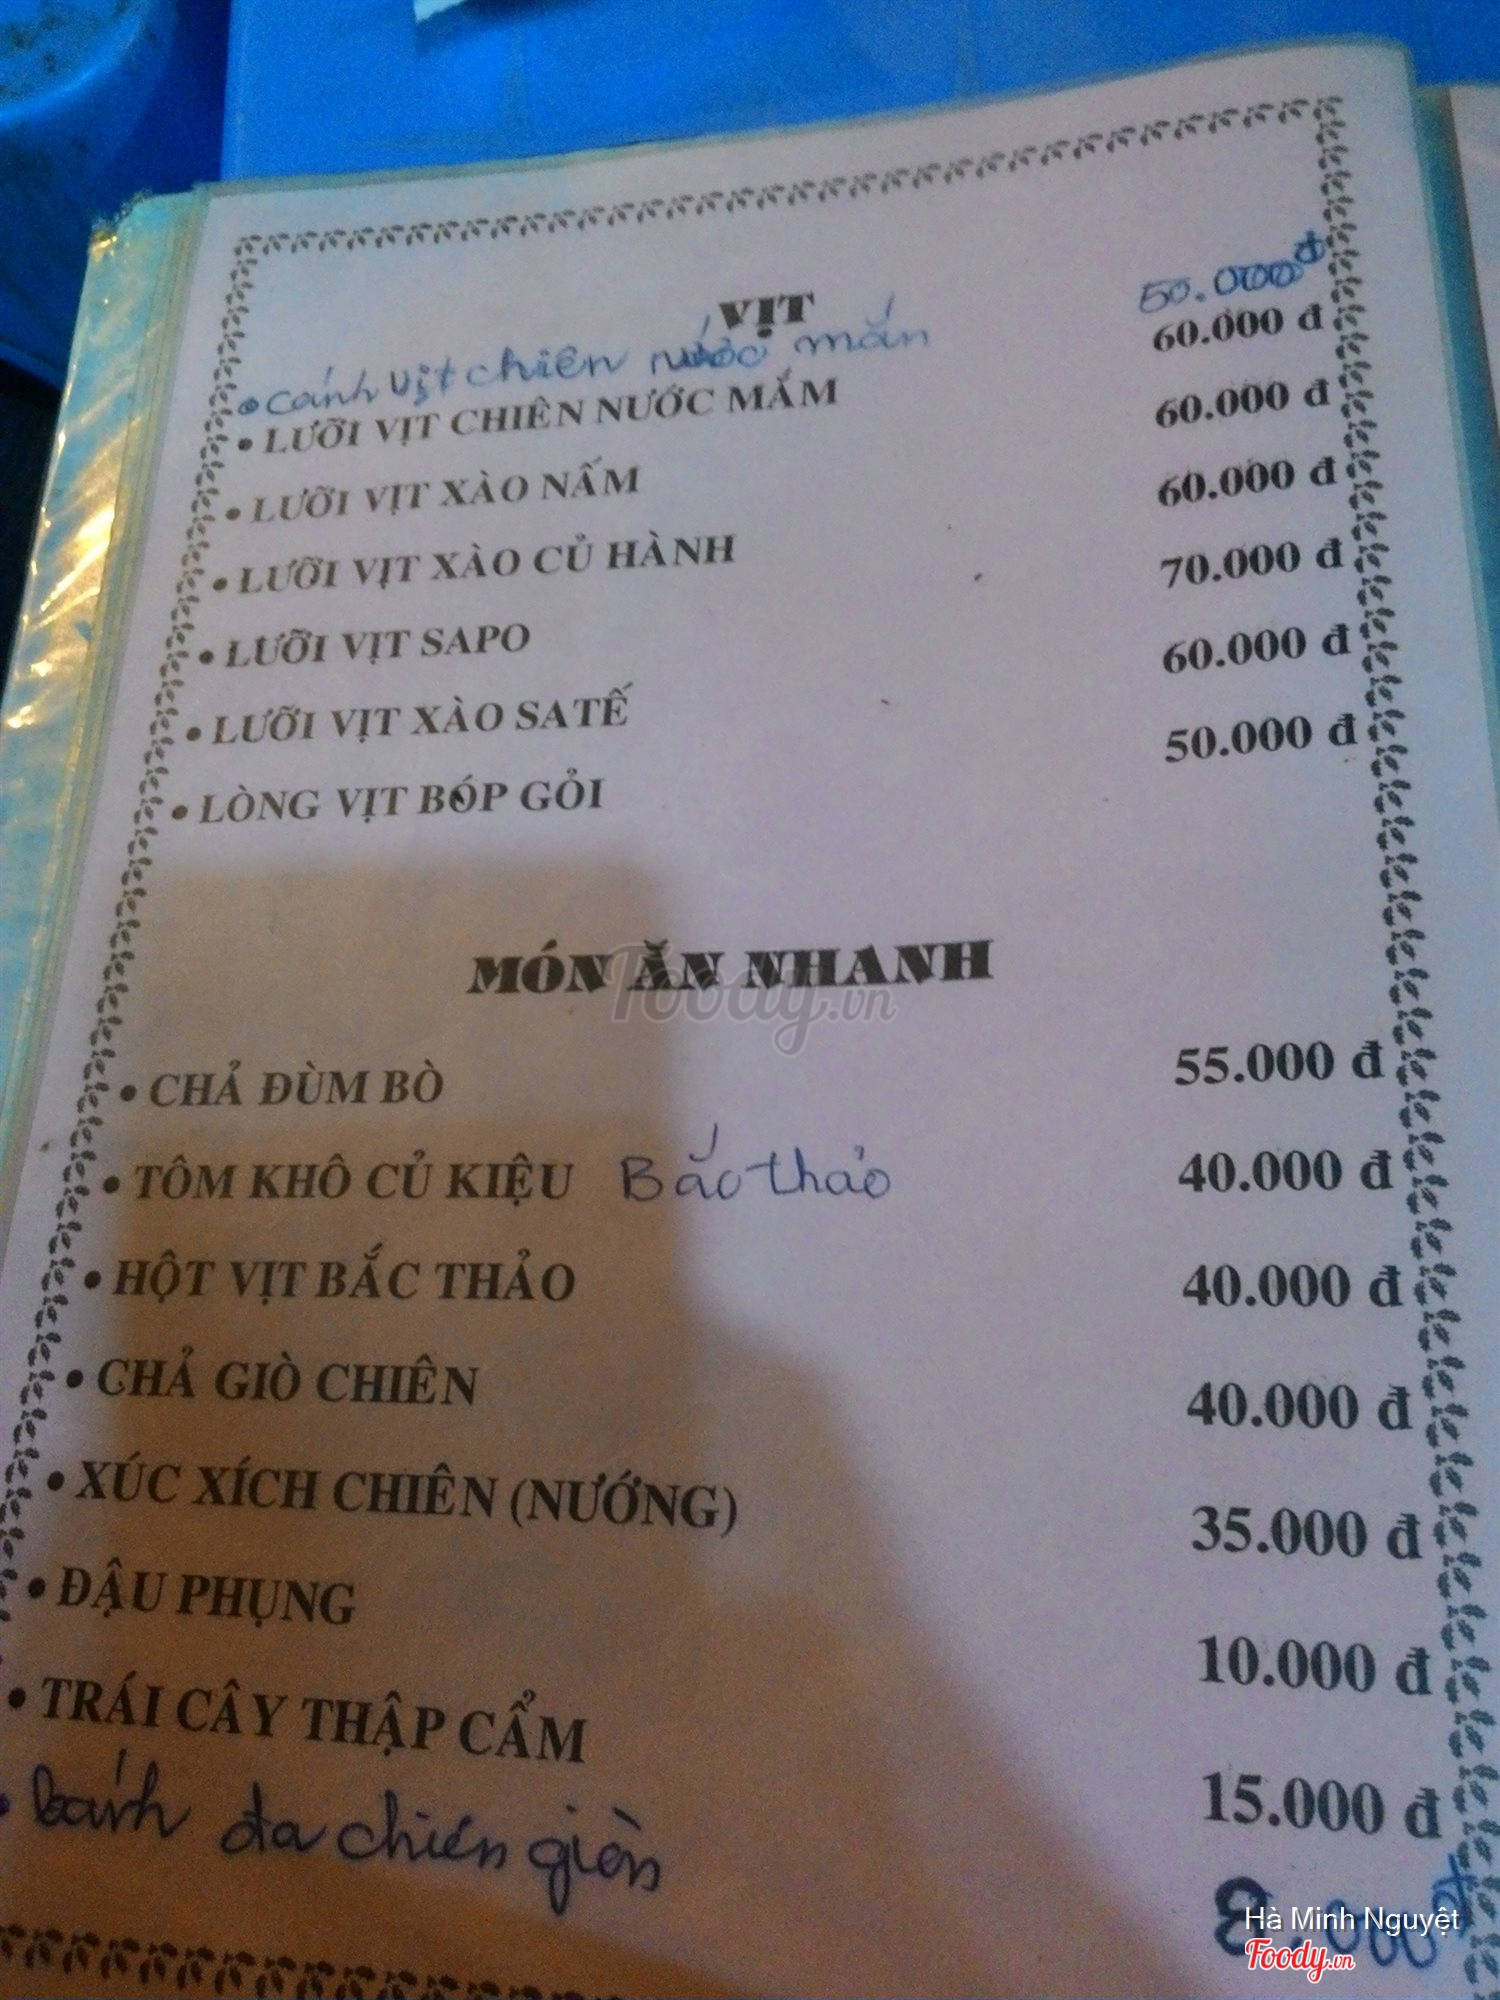 VỊT
• Cánh vịt chiên nước mắm 50.000đ
• LƯỠI VỊT CHIÊN NƯỚC MẮM 60.000 đ
• LƯỠI VỊT XÀO NẤM 60.000 đ
• LƯỠI VỊT XÀO CỦ HÀNH 60.000 đ
• LƯỠI VỊT SAPO 70.000 đ
• LƯỠI VỊT XÀO SATẾ 60.000 đ
• LÒNG VỊT BÓP GỎI 50.000 đ
MÓN ĂN NHANH
Foody.vn
• CHẢ ĐÙM BÒ 55.000 đ
• TÔM KHÔ CỦ KIỆU Bắc thảo 40.000 đ
• HỘT VỊT BẮC THẢO 40.000 đ
• CHẢ GIÒ CHIÊN 40.000 đ
• XÚC XÍCH CHIÊN (NƯỚNG) 35.000 đ
• ĐẬU PHỤNG 10.000 đ
• TRÁI CÂY THẬP CẨM 15.000 đ
• bánh đa chiên giòn
Hà Minh Nguyệt
Foody.vn